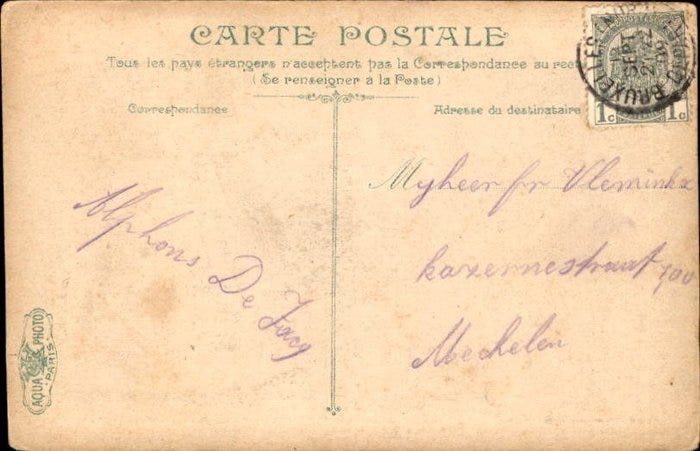 CARTE POSTALE
Tous les pays étrangers n'acceptent pas la Correspondance au rect
(Se renseigner à la Poste)
Correspondance
Adresse du destinataire
Alphons De
Myheer fr Vleminkx
kazernestraat 700
Mechelen
AQUA PHOTO
PARIS
1c 1c
BRUXELLES
SEPT